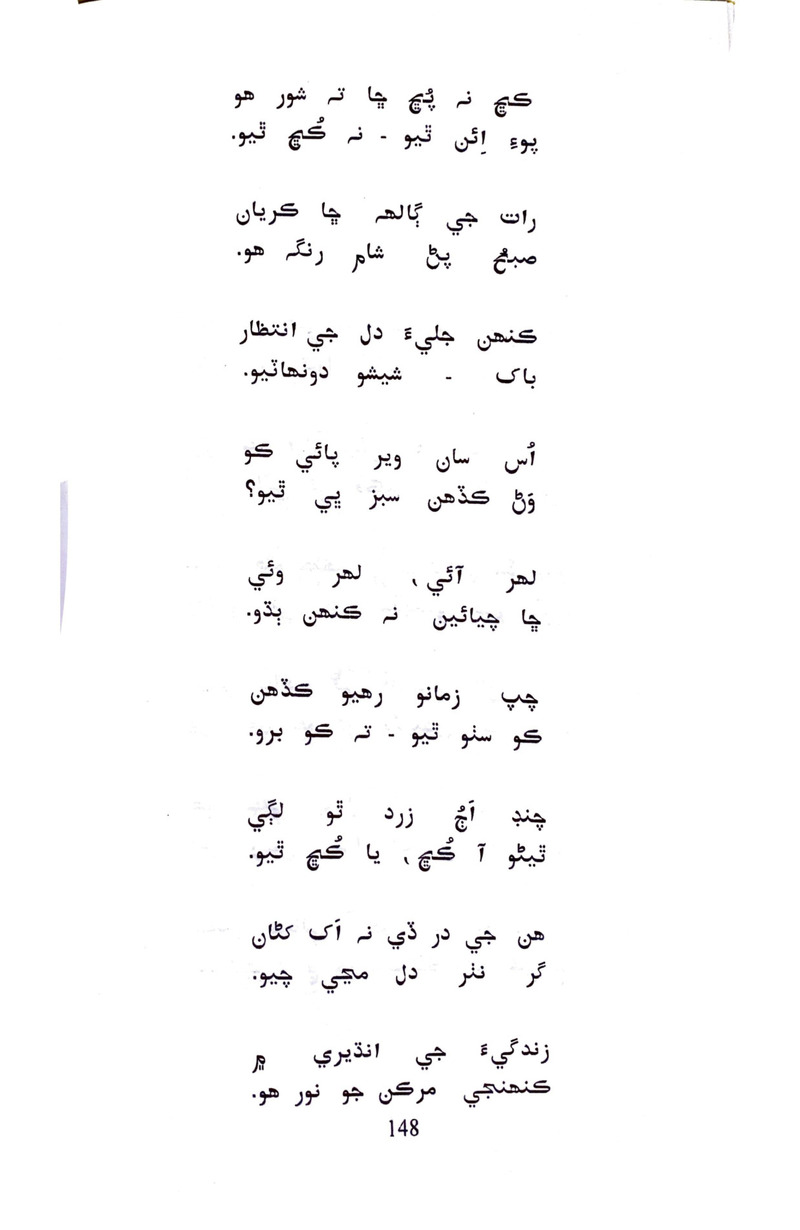 ڪڇ نہ پُڇ ڇا تہ شور هو
پوءِ اِئن ٿيو - نہ ڪُڇ ٿيو.
رات جي ڳالھہ ڇا ڪريان
صبحُ پڻ شام رنگہ هو.
ڪنهن جليءَ دل جي انتظار
باک - شيشو دونهاٽيو.
اُس سان وير پائي ڪو
وَڻ ڪڏهن سبز ڀي ٿيو؟
لهر آئي، لهر وئي
ڇا چيائين نہ ڪنهن ٻڌو.
چپ زمانو رهيو ڪڏهن
ڪو سٺو ٿيو - تہ ڪو برو.
چنڊ اَڄُ زرد ٿو لڳي
ٿيڻو آ ڪُڇ، يا ڪُڇ ٿيو.
هن جي در ڏي نہ اَک کڻان
گر نٺر دل مڃي چيو.
زندگيءَ جي انڌيري ۾
ڪنهنجي مرڪن جو نور هو.
148